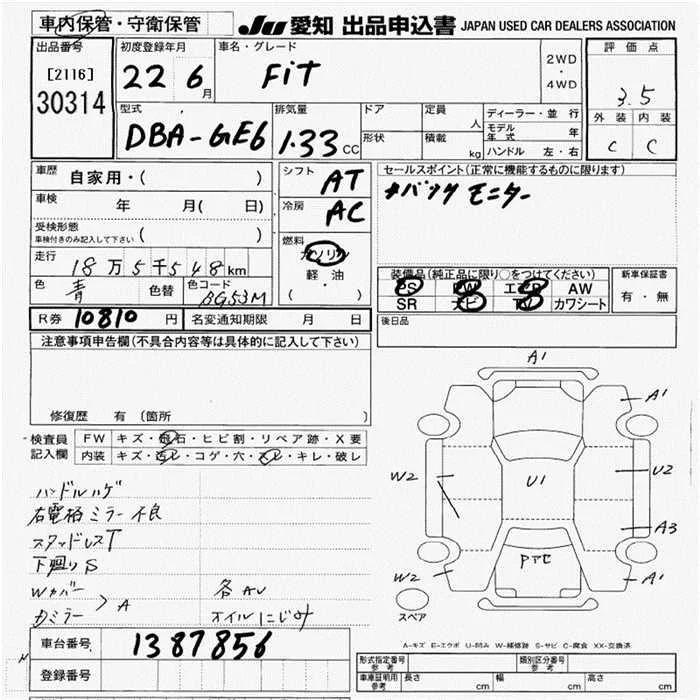 車内保管・守衛保管
JU 愛知 出品申込書 JAPAN USED CAR DEALERS ASSOCIATION
出品番号
[2116]
30314
初度登録年月
22 6月
車名・グレード
FiT
2WD
・
4WD
評価点
3.5
外装 内装
C C
型式
DBA-GE6
排気量
1.33cc
ドア
形状
定員 人
積載 kg
ディーラー・並行
モデル年式 年
ハンドル 左・右
車歴 自家用・( )
車検 年 月( 日)
受検形態
車検付きのみ記入して下さい ( )
走行 18万5千548km
色 青 色替 色コード BG53M
シフト AT
冷房 AC
燃料
ガソリン
軽油
( ・ )
セールスポイント(正常に機能するものに限ります)
#バック モニター
装備品(純正品に限り○をつけてください)
PS PW エアB AW
SR ナビ TV カワシート
新車保証書
有・無
R券 10810 円 名変通知期限 月 日
後日品
注意事項申告欄(不具合内容等は具体的に記入して下さい)
修復歴 有 (箇所 )
検査員記入欄
FW キズ・飛石・ヒビ割・リペア跡・X要
内装 キズ・汚レ・コゲ・穴・スレ・キレ・破レ
ハンドルハゲ
右電格ミラー不良
スタッドレスT
下廻りS
Wカバー
ミラー > A
各AU
オイルにじみ
A1
A1
W2
U1
U2
A3
W2
A1
スペア
A-キズ E-エクボ U-凹み W-補修跡 S-サビ C-腐食 XX-交換済
車台番号 1387856
登録番号
形式指定番号 参考
類別区分番号 参考
車庫証明用 参考
長さ cm 幅 cm 高さ cm